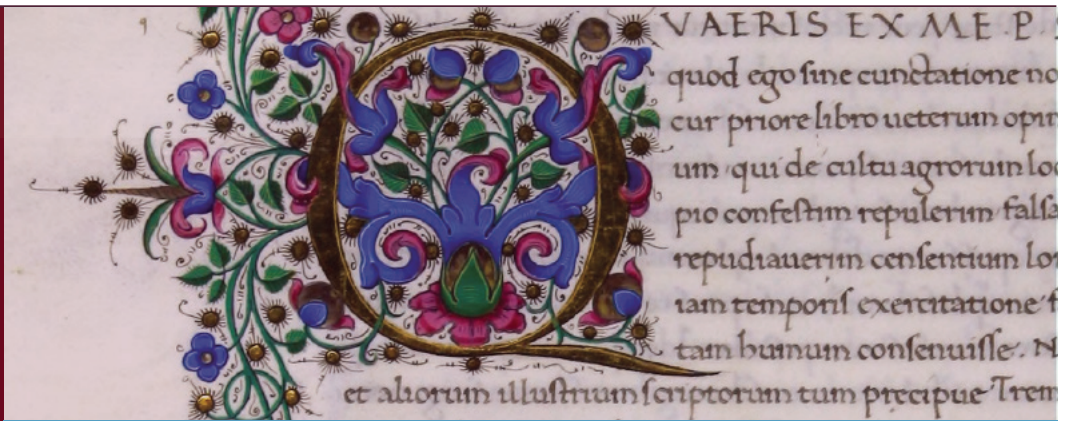 QVAERIS EX ME P. S
quod ego sine cunctatione no
cur priore libro ueterum opin
um qui de cultu agrorum loc
pio confestim repulerint falsa
repudiauerint censentium lon
iam temporis exercitatione f
tam humum consenuisse. N
et aliorum illustrium scriptorum tum precipue Trem